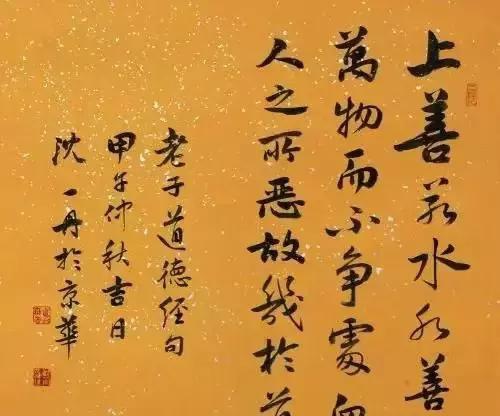 上善若水水善
萬物而不争處
人之所恶故幾於
老子道德经句
甲午仲秋吉日
沈一丹於京華